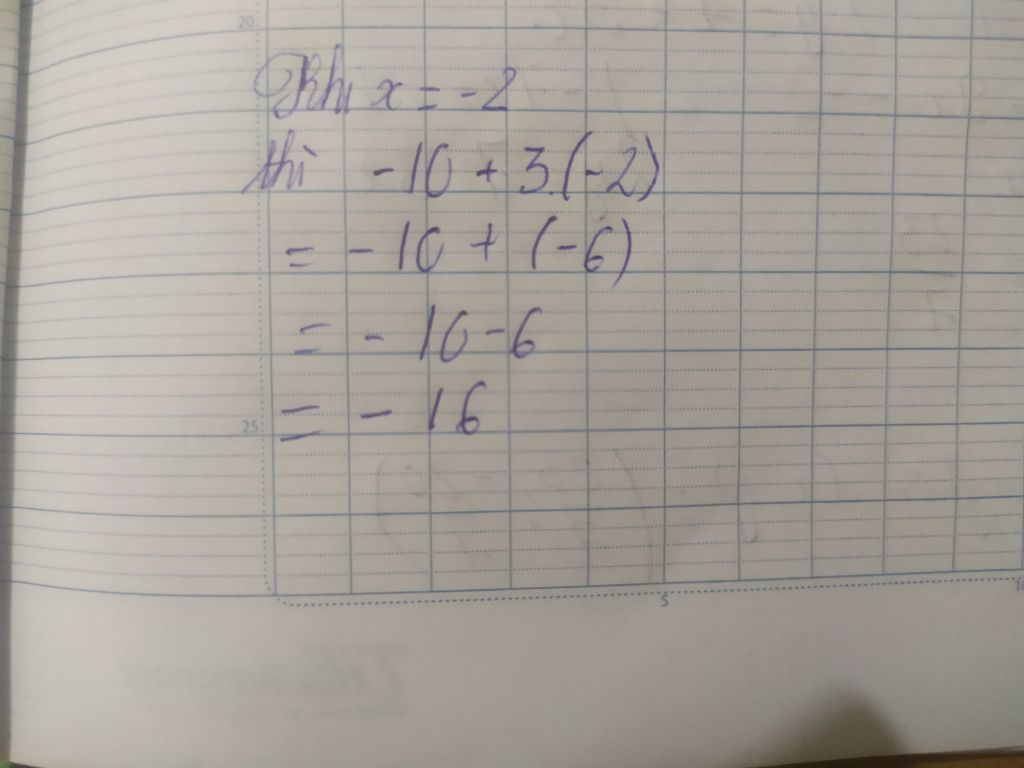 20
Khi x = -2
thì -10 + 3.(-2)
= -10 + (-6)
= -10 - 6
= -16
25
5
10